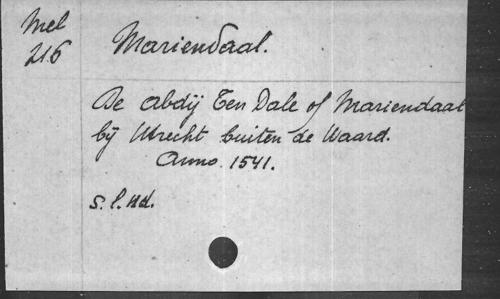 Mel
216
Mariendaal.
De Abdij Ten Dale of Mariendaal
bij Utrecht buiten de Waard.
Anno. 1541.
s. l. nd.